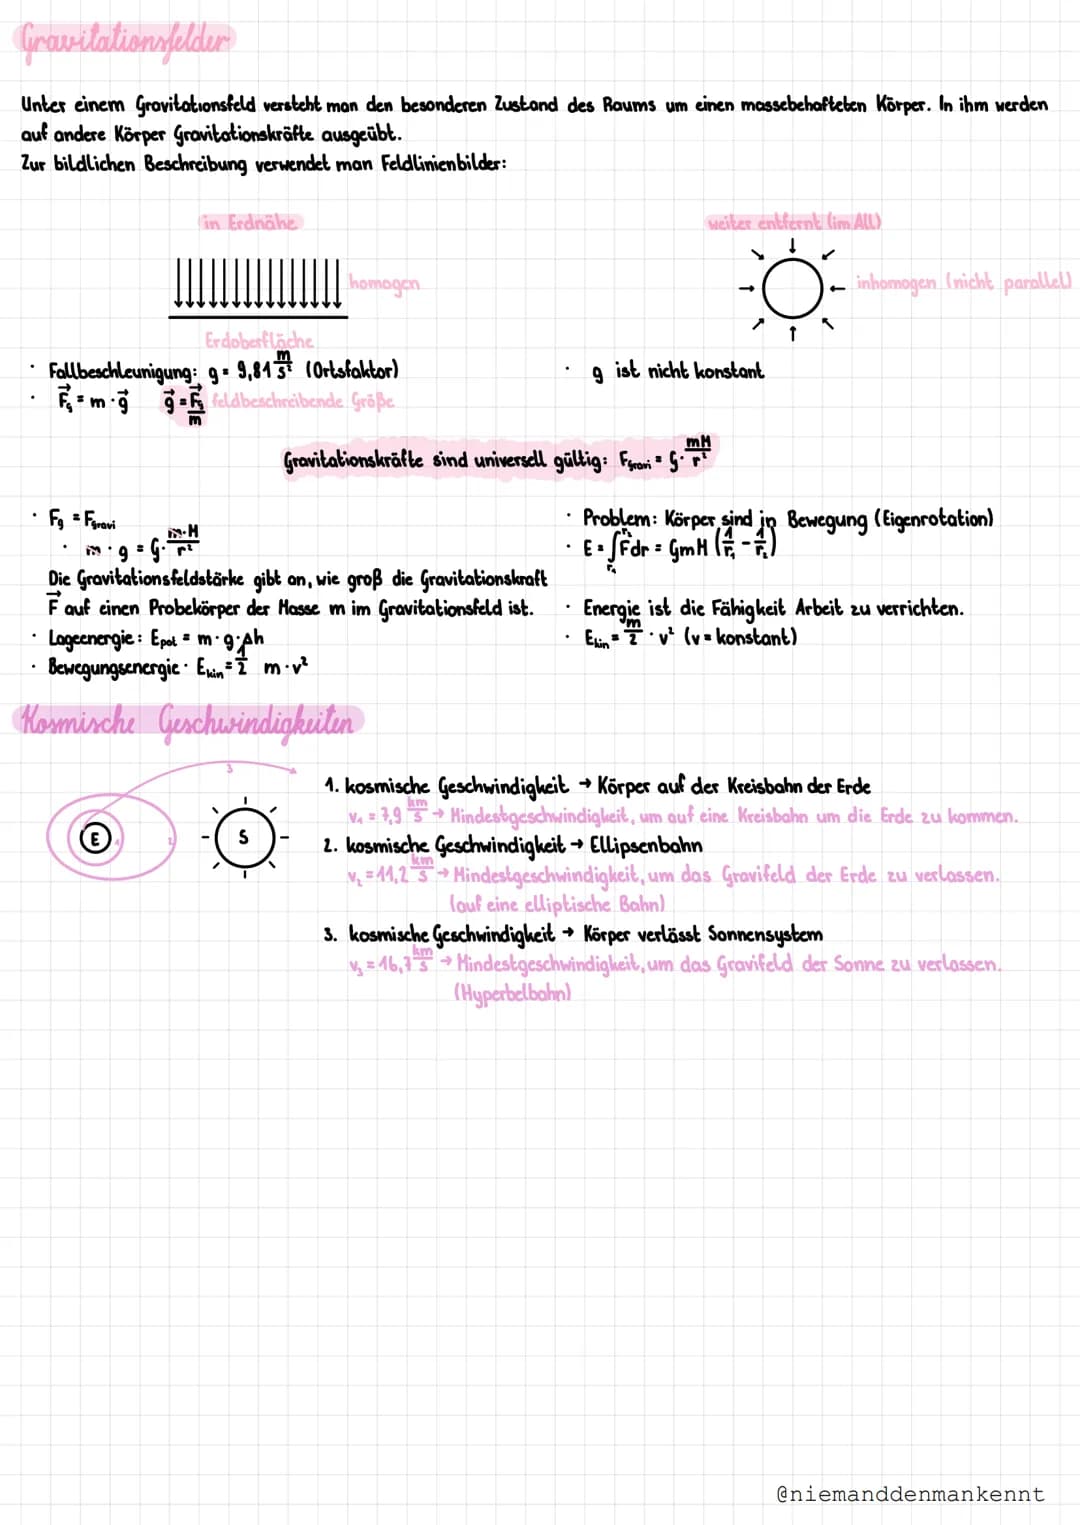 Gravitationsfelder
Unter einem Gravitationsfeld versteht man den besonderen Zustand des Raums um einen massebehafteten Körper. In ihm werden
auf andere Körper Gravitationskräfte ausgeübt.
Zur bildlichen Beschreibung verwendet man Feldlinienbilder:
in Erdnähe
homogen
Erdoberfläche
· Fallbeschleunigung: g = 9,81 m/s² (Ortsfaktor)
· F⃗g = m · g⃗   g⃗ = F⃗g/m feldbeschreibende Größe
weiter entfernt (im All)
inhomogen (nicht parallel)
· g ist nicht konstant
Gravitationskräfte sind universell gültig: Fgravi = G · mM/r²
· Fg = Fgravi
· m · g = G · m·M/r²
Die Gravitationsfeldstärke gibt an, wie groß die Gravitationskraft
F⃗ auf einen Probekörper der Masse m im Gravitationsfeld ist.
· Lageenergie: Epot = m · g · Δh
· Bewegungsenergie · Ekin = 1/2 m · v²
· Problem: Körper sind in Bewegung (Eigenrotation)
· E = ∫r₁r₂ F⃗dr = GmM (1/r₁ - 1/r₂)
· Energie ist die Fähigkeit Arbeit zu verrichten.
· Ekin = m/2 · v² (v = konstant)
Kosmische Geschwindigkeiten
3
E
1
2
S
1. kosmische Geschwindigkeit → Körper auf der Kreisbahn der Erde
v₁ = 7,9 km/s → Mindestgeschwindigkeit, um auf eine Kreisbahn um die Erde zu kommen.
2. kosmische Geschwindigkeit → Ellipsenbahn
v₂ = 11,2 km/s → Mindestgeschwindigkeit, um das Gravifeld der Erde zu verlassen.
(auf eine elliptische Bahn)
3. kosmische Geschwindigkeit → Körper verlässt Sonnensystem
v₃ = 16,7 km/s → Mindestgeschwindigkeit, um das Gravifeld der Sonne zu verlassen.
(Hyperbelbahn)
@niemanddenmankennt